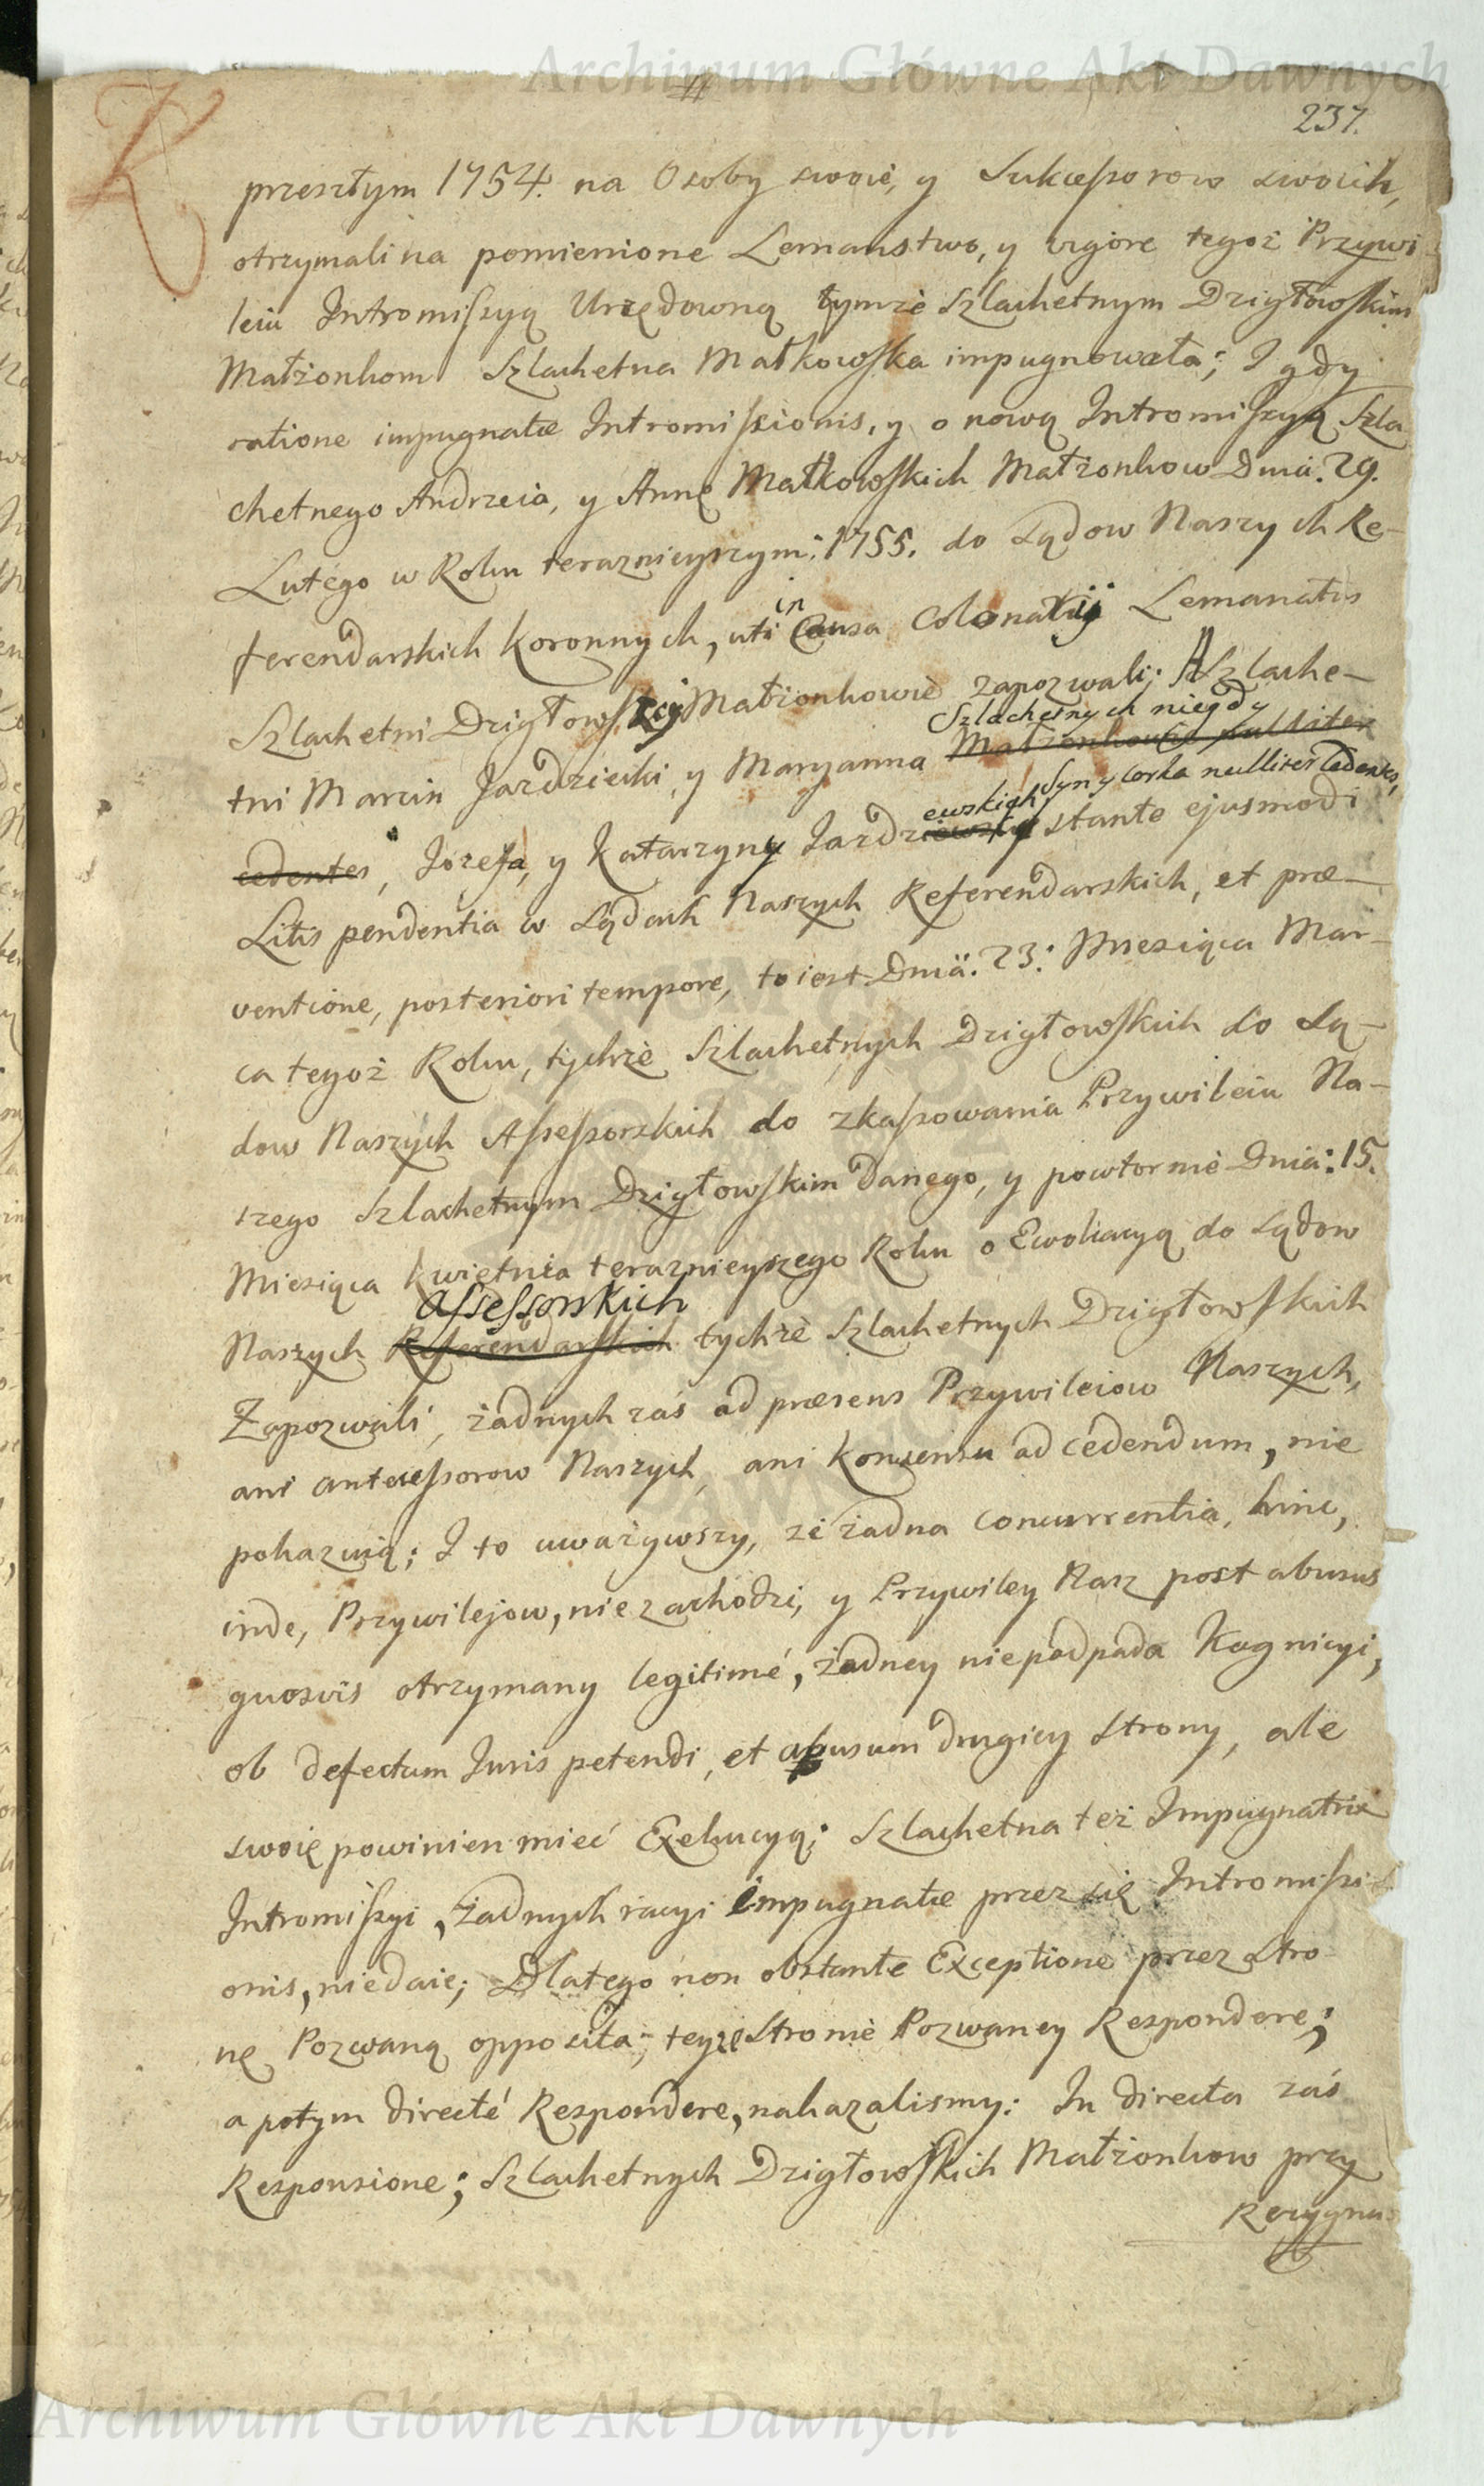 Archiwum Główne Akt Dawnych
#
237.
przeszłym 1754. na Osoby swoie, y Sukcessorow swoich,
otrzymali na pomienione Lemanstwo, y vigore tegoż Przywi-
leiu Intromissyą Urzędowną tymże Szlachetnym Dzigłowskim
Małżonkom Szlachetna Małkowska impugnowała; I gdy
ratione impugnatæ Intromissionis, y o nową Intromissyą Szla
chetnego Andrzeia, y Annę Małkowskich Małżonkow Dnia. 29.
Lutego w Roku teraznieyszym: 1755. do Sądow Naszych Re-
ferendarskich Koronnych, uti in Causa Colonatij Lemanatus
Szlachetni Dzigłowscy Małżonkowie zapozwali; A Szlache-
Szlachetnych niegdy
tni Marcin Jazdziecki, y Maryanna Małżonkowie nulliter
ewskich Syn y Corka nulliter Cedentes,
cedentes, Jozefa, y Katarzyny Jazdziewscy stante ejusmodi
Litis pendentia w Sądach Naszych Referendarskich, et præ-
ventione, posteriori tempore, to iest Dnia. 23: Miesiąca Mar-
ca tegoż Roku, tychże Szlachetnych Dzigłowskich do Są-
dow Naszych Assessorskich do zkassowania Przywileiu Na-
szego Szlachetnym Dzigłowskim danego, y powtornie Dnia: 15.
Miesiąca Kwietnia teraznieyszego Roku o Ewokacyą do Sądow
Assessorskich
Naszych Referendarskich tychże Szlachetnych Dzigłowskich
Zapozwali, żadnych zaś ad præsens Przywileiow Naszych,
ani antecessorow Naszych, ani Konsensu ad cedendum, nie
pokazuią; I to uważywszy, że żadna concurrentia, hinc,
inde, Przywilejow, nie zachodzi, y Przywiley Nasz post abusus
quosvis otrzymany legitimé, żadney niepodpada Kognicyi,
ob defectum Juris petendi, et abusum drugiey Strony, ale
swoię powinien mieć Exekucyą; Szlachetna też Impugnatrix
Intromissyi, żadnych racyi impugnatæ przez się Intromissi-
onis, niedaie; Dlatego non obstante Exceptione przez Stro-
nę Pozwaną opposita; teyże Stronie Pozwaney Respondere;
a potym directé Respondere, nakazalismy: In directa zaś
Responsione; Szlachetnych Dzigłowskich Małżonkow przy
Rezygna-
Archiwum Główne Akt Dawnych